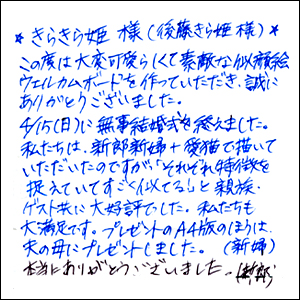 ★きらきら姫 様(後藤きら姫様)★
この度は大変可愛らしくて素敵な似顔絵
ウェルカムボードを作っていただき、誠に
ありがとうございました。
4/15(日)に無事結婚式を終えました。
私たちは、新郎新婦+愛猫で描いて
いただいたのですが、「それぞれ特徴を
捉えていてすごく似てる」と親族・
ゲスト共に大好評でした。私たちも
大満足です。プレゼントのA4版のほうは、
夫の母にプレゼントしました。(新婦)
本当にありがとうございました。